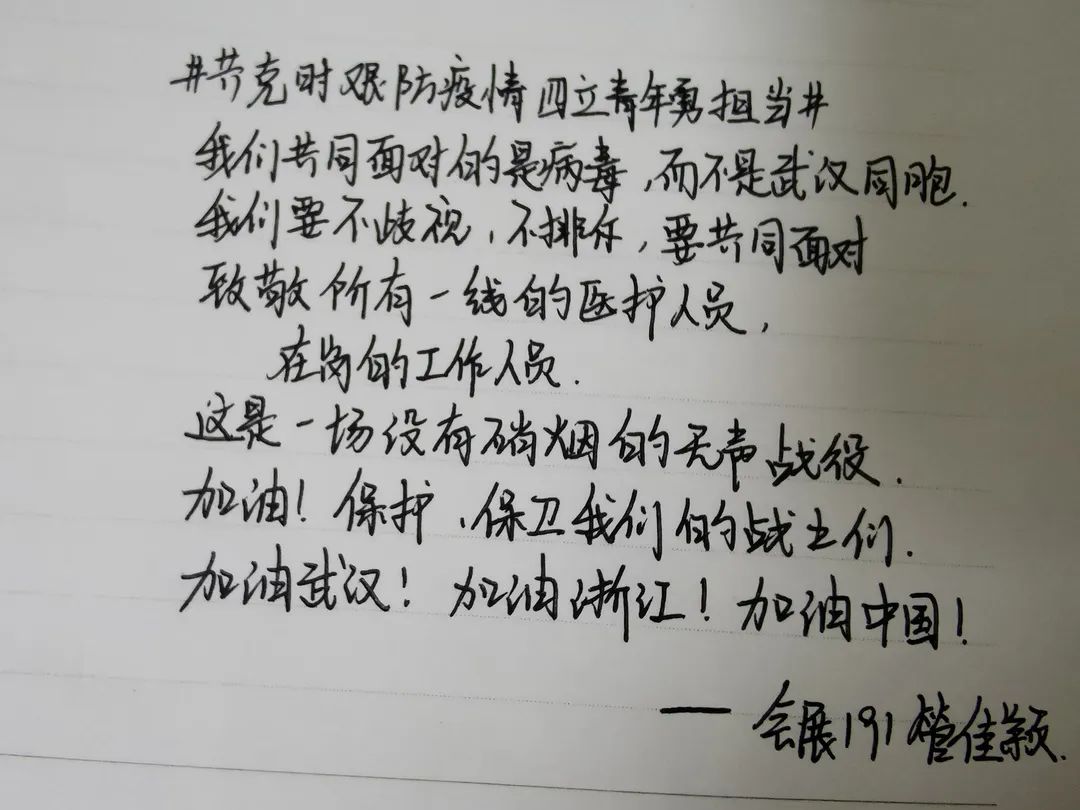 #共克时艰防疫情 四立青年勇担当#
我们共同面对的是病毒,而不是武汉同胞.
我们要不歧视,不排斥,要共同面对
致敬所有一线的医护人员,
在岗的工作人员.
这是一场没有硝烟的无声战役.
加油!保护、保卫我们的战士们.
加油武汉!加油浙江!加油中国!
——会展191 管佳颖.